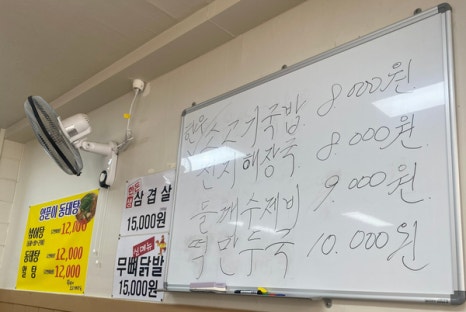 영푼이 동태탕
12,000
동태탕 12,000
알탕 12,000
삼겹살
15,000원
신메뉴
무뼈닭발
15,000원
한우소고기국밥 8000원
선지해장국 8.000원
들깨수제비 9.000원
떡만두국 10.000원